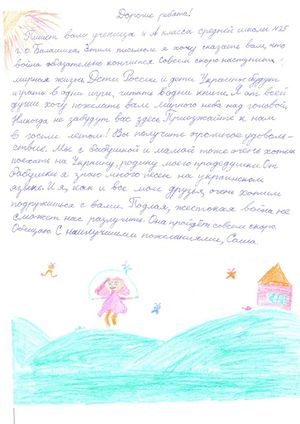 Дорогие ребята!
Пишет вам ученица 4 А класса средней школы №25
г.о. Балашиха. Этим письмом я хочу сказать вам, что
война обязательно кончится. Совсем скоро наступит
мирная жизнь. Дети России и дети Украины будут
играть в одни игры, читать одни книги. Я от всей
души хочу пожелать вам мирного неба над головой.
Никогда не забудут вас здесь. Приезжайте к нам
в гости летом! Вы получите огромное удоволь-
ствие. Мы с бабушкой и мамой тоже очень хотим
поехать на Украину, родину моего прадедушки. От
бабушки я знаю много песен на украинском
языке. И я, как и все мои друзья, очень хотим
подружиться с вами. Подлая, жестокая война не
сможет нас разлучить. Она пройдёт совсем скоро.
Обещаю. С наилучшими пожеланиями, Саша.